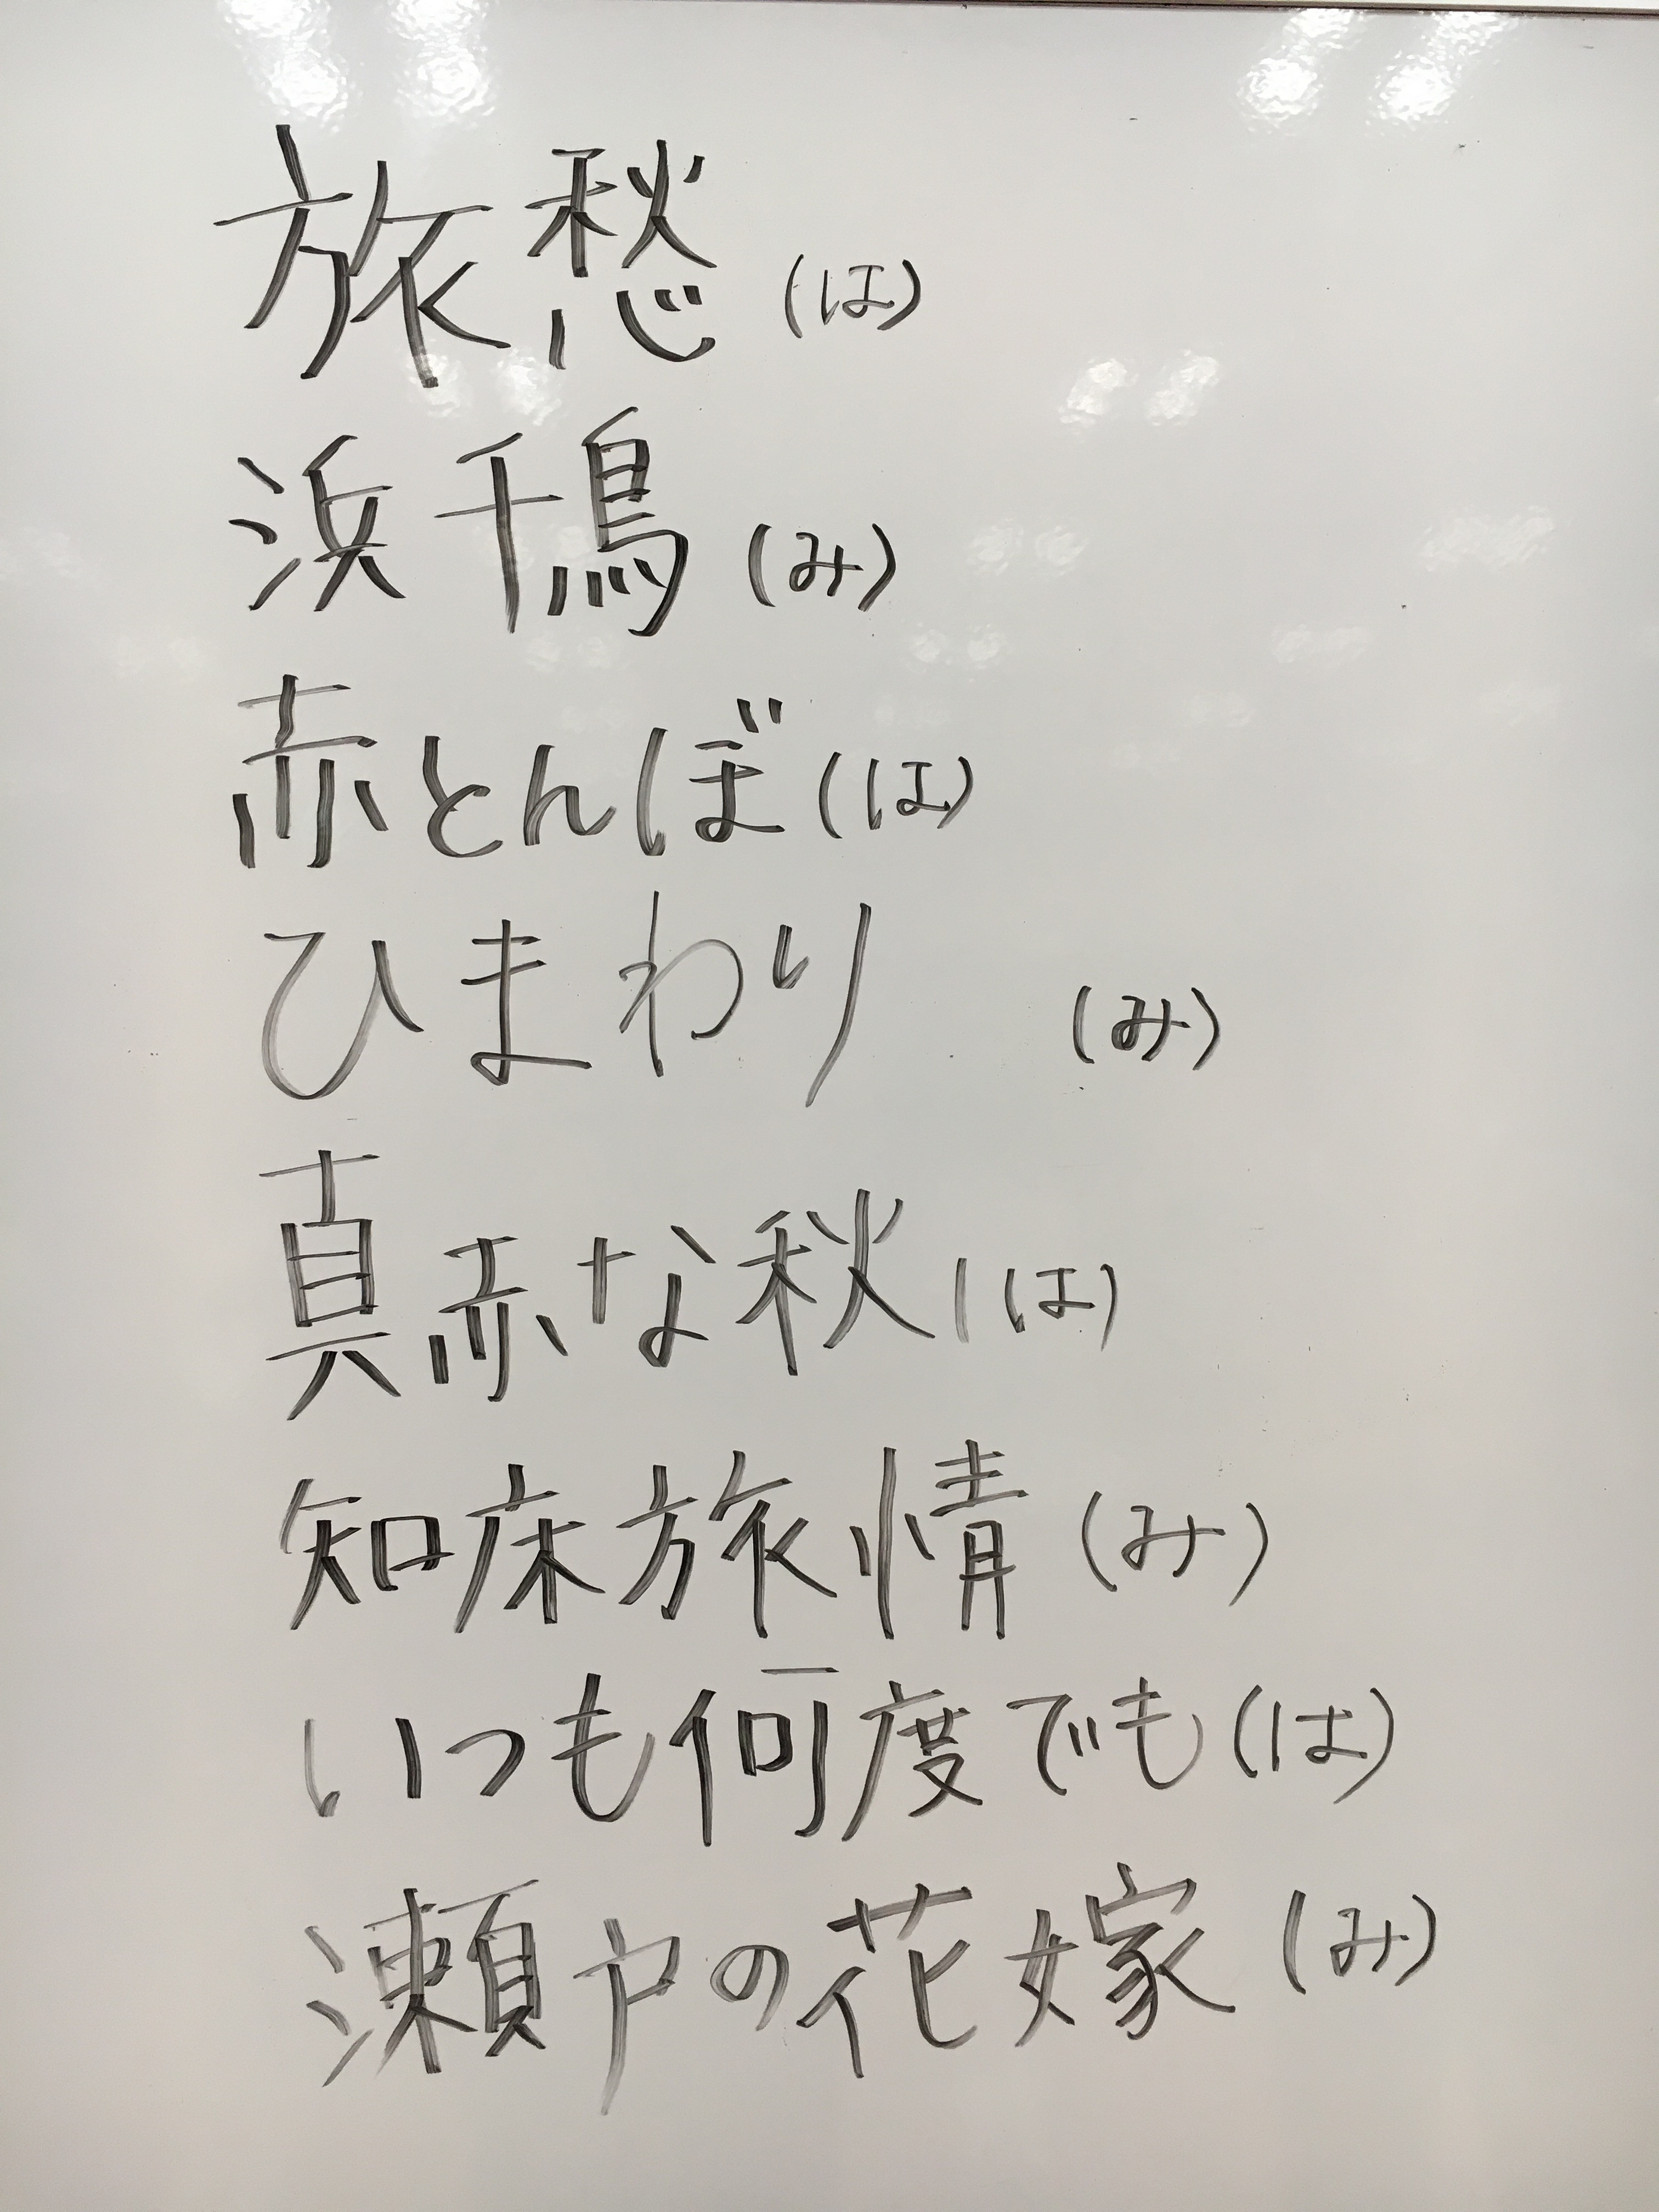 旅愁(は)
浜千鳥(み)
赤とんぼ(は)
ひまわり (み)
真赤な秋(は)
知床旅情(み)
いつも何度でも(は)
瀬戸の花嫁(み)